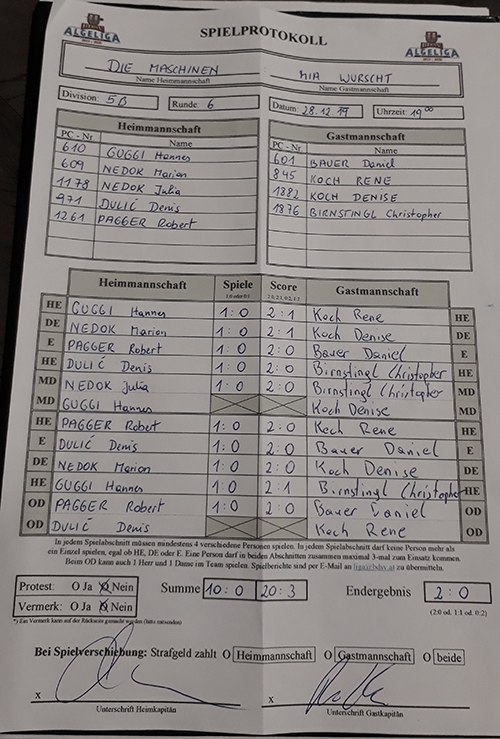 ALGELIGA
SPIELPROTOKOLL
ALGELIGA
DIE MASCHINEN
MIA WURSCHT
Name Heimmannschaft
Name Gastmannschaft
Division: 5B Runde: 6 Datum: 28.12.19 Uhrzeit: 19 00
Heimmannschaft Gastmannschaft
PC - Nr. Name PC - Nr. Name
610 GUGGI Hannes 601 BAUER Daniel
609 NEDOK Marion 845 KOCH RENE
1178 NEDOK Julia 1882 KOCH DENISE
971 DULIĆ Denis 1876 BIRNSTINGL Christopher
1261 PAGGER Robert
Heimmannschaft Spiele Score Gastmannschaft
HE GUGGI Hannes 1:0 2:1 Koch Rene HE
DE NEDOK Marion 1:0 2:1 Koch Denise DE
E PAGGER Robert 1:0 2:0 Bauer Daniel E
HE DULIĆ Denis 1:0 2:0 Birnstingl Christopher HE
MD NEDOK Julia 1:0 2:0 Birnstingl Christopher MD
MD GUGGI Hannes Koch Denise MD
HE PAGGER Robert 1:0 2:0 Koch Rene HE
E DULIĆ Denis 1:0 2:0 Bauer Daniel E
DE NEDOK Marion 1:0 2:0 Koch Denise DE
HE GUGGI Hannes 1:0 2:1 Birnstingl Christopher HE
OD PAGGER Robert 1:0 2:0 Bauer Daniel OD
OD DULIĆ Denis Koch Rene OD
In jedem Spielabschnitt müssen mindestens 4 verschiedene Personen spielen. In jedem Spielabschnitt darf keine Person mehr als
ein Einzel spielen, egal ob HE, DE oder E. Eine Person darf in beiden Abschnitten zusammen maximal 3-mal zum Einsatz kommen.
Beim OD kann auch 1 Herr und 1 Dame im Team spielen. Spielberichte sind per E-Mail an zu übermitteln.
Protest: O Ja O Nein Summe 10:0 20:3 Endergebnis 2:0
Vermerk: O Ja O Nein (2:0 od. 1:1 od. 0:2)
*) Ein Vermerk kann auf der Rückseite gemacht werden (bitte mitsenden)
Bei Spielverschiebung: Strafgeld zahlt O Heimmannschaft O Gastmannschaft O beide
x x
Unterschrift Heimkapitän Unterschrift Gastkapitän